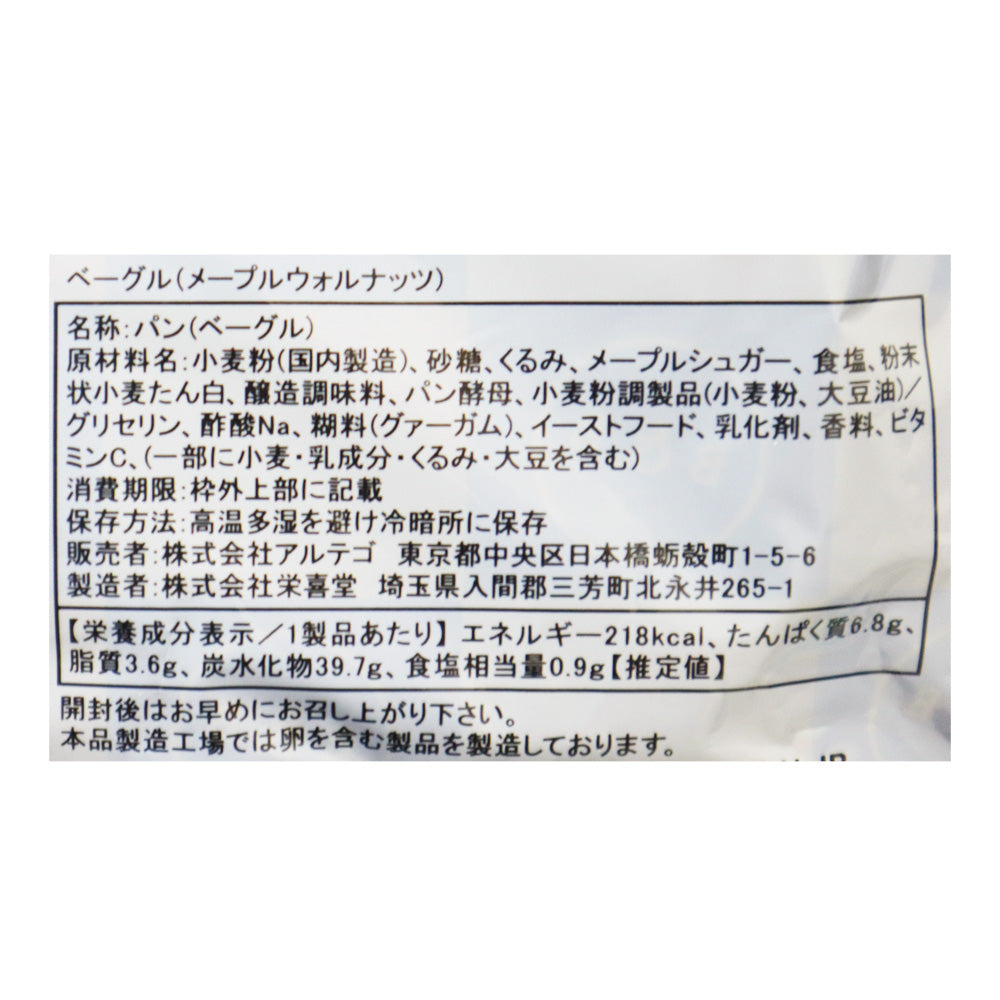 ベーグル(メープルウォルナッツ)
名称:パン(ベーグル)
原材料名:小麦粉(国内製造)、砂糖、くるみ、メープルシュガー、食塩、粉末
状小麦たん白、醸造調味料、パン酵母、小麦粉調製品(小麦粉、大豆油)/
グリセリン、酢酸Na、糊料(グァーガム)、イーストフード、乳化剤、香料、ビタ
ミンC、(一部に小麦・乳成分・くるみ・大豆を含む)
消費期限:枠外上部に記載
保存方法:高温多湿を避け冷暗所に保存
販売者:株式会社アルテゴ 東京都中央区日本橋蛎殻町1-5-6
製造者:株式会社栄喜堂 埼玉県入間郡三芳町北永井265-1
【栄養成分表示/1製品あたり】エネルギー218kcal、たんぱく質6.8g、
脂質3.6g、炭水化物39.7g、食塩相当量0.9g【推定値】
開封後はお早めにお召し上がり下さい。
本品製造工場では卵を含む製品を製造しております。